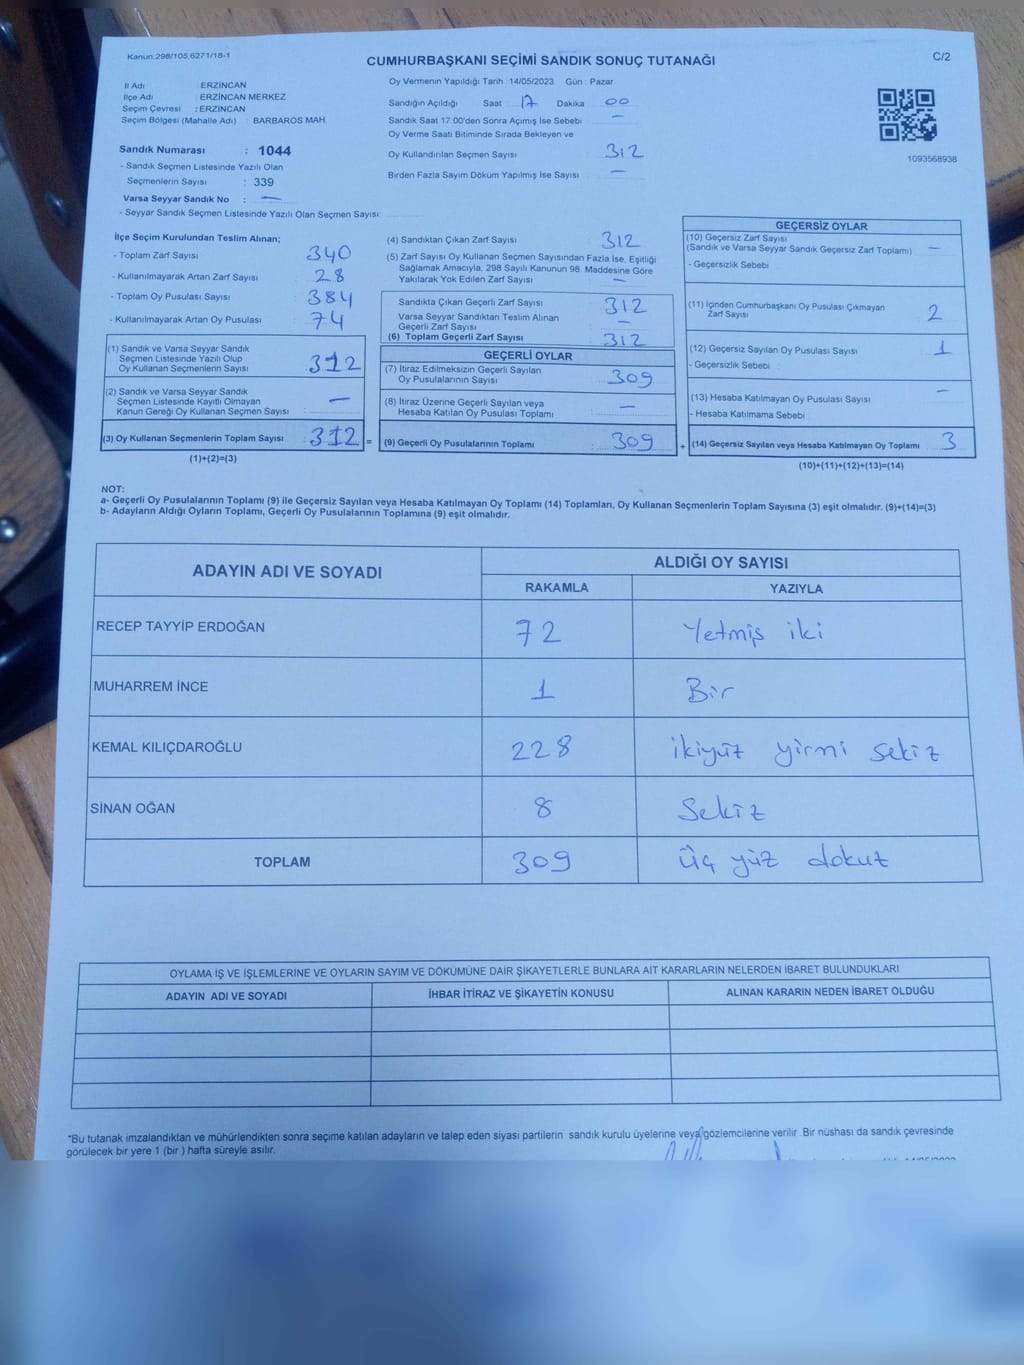 Kanun:298/105,6271/18-1
CUMHURBAŞKANI SEÇİMİ SANDIK SONUÇ TUTANAĞI
C/2
İl Adı ERZİNCAN
İlçe Adı ERZİNCAN MERKEZ
Seçim Çevresi : ERZİNCAN
Seçim Bölgesi (Mahalle Adı) : BARBAROS MAH.
Sandık Numarası : 1044
- Sandık Seçmen Listesinde Yazılı Olan
Seçmenlerin Sayısı : 339
Varsa Seyyar Sandık No : —
- Seyyar Sandık Seçmen Listesinde Yazılı Olan Seçmen Sayısı:
Oy Vermenin Yapıldığı Tarih 14/05/2023 Gün : Pazar
Sandığın Açıldığı Saat 17 Dakika 00
Sandık Saat 17:00'den Sonra Açımış İse Sebebi —
Oy Verme Saati Bitiminde Sırada Bekleyen ve
Oy Kullandırılan Seçmen Sayısı 312
Birden Fazla Sayım Döküm Yapılmış İse Sayısı —
1093568938
İlçe Seçim Kurulundan Teslim Alınan;
- Toplam Zarf Sayısı 340
- Kullanılmayarak Artan Zarf Sayısı 28
- Toplam Oy Pusulası Sayısı 384
- Kullanılmayarak Artan Oy Pusulası 74
(1) Sandık ve Varsa Seyyar Sandık
Seçmen Listesinde Yazılı Olup
Oy Kullanan Seçmenlerin Sayısı 312
(2) Sandık ve Varsa Seyyar Sandık
Seçmen Listesinde Kayıtlı Olmayan
Kanun Gereği Oy Kullanan Seçmen Sayısı —
(3) Oy Kullanan Seçmenlerin Toplam Sayısı 312 =
(1)+(2)=(3)
(4) Sandıktan Çıkan Zarf Sayısı 312
(5) Zarf Sayısı Oy Kullanan Seçmen Sayısından Fazla İse, Eşitliği
Sağlamak Amacıyla, 298 Sayılı Kanunun 98. Maddesine Göre
Yakılarak Yok Edilen Zarf Sayısı —
Sandıkta Çıkan Geçerli Zarf Sayısı 312
Varsa Seyyar Sandıktan Teslim Alınan
Geçerli Zarf Sayısı —
(6) Toplam Geçerli Zarf Sayısı 312
GEÇERLİ OYLAR
(7) İtiraz Edilmeksizin Geçerli Sayılan
Oy Pusulalarının Sayısı 309
(8) İtiraz Üzerine Geçerli Sayılan veya
Hesaba Katılan Oy Pusulası Toplamı —
(9) Geçerli Oy Pusulalarının Toplamı 309 +
GEÇERSİZ OYLAR
(10) Geçersiz Zarf Sayısı
(Sandık ve Varsa Seyyar Sandık Geçersiz Zarf Toplamı) —
- Geçersizlik Sebebi
(11) İçinden Cumhurbaşkanı Oy Pusulası Çıkmayan
Zarf Sayısı 2
(12) Geçersiz Sayılan Oy Pusulası Sayısı 1
- Geçersizlik Sebebi
(13) Hesaba Katılmayan Oy Pusulası Sayısı —
- Hesaba Katılmama Sebebi
(14) Geçersiz Sayılan veya Hesaba Katılmayan Oy Toplamı 3
(10)+(11)+(12)+(13)=(14)
NOT:
a- Geçerli Oy Pusulalarının Toplamı (9) ile Geçersiz Sayılan veya Hesaba Katılmayan Oy Toplamı (14) Toplamları, Oy Kullanan Seçmenlerin Toplam Sayısına (3) eşit olmalıdır. (9)+(14)=(3)
b- Adayların Aldığı Oyların Toplamı, Geçerli Oy Pusulalarının Toplamına (9) eşit olmalıdır.
ADAYIN ADI VE SOYADI
ALDIĞI OY SAYISI
RAKAMLA YAZIYLA
RECEP TAYYİP ERDOĞAN 72 Yetmiş iki
MUHARREM İNCE 1 Bir
KEMAL KILIÇDAROĞLU 228 ikiyüz yirmi sekiz
SİNAN OĞAN 8 Sekiz
TOPLAM 309 üç yüz dokuz
OYLAMA İŞ VE İŞLEMLERİNE VE OYLARIN SAYIM VE DÖKÜMÜNE DAİR ŞİKAYETLERLE BUNLARA AİT KARARLARIN NELERDEN İBARET BULUNDUKLARI
ADAYIN ADI VE SOYADI İHBAR İTİRAZ VE ŞİKAYETİN KONUSU ALINAN KARARIN NEDEN İBARET OLDUĞU
*Bu tutanak imzalandıktan ve mühürlendikten sonra seçime katılan adayların ve talep eden siyası partilerin sandık kurulu üyelerine veya gözlemcilerine verilir. Bir nüshası da sandık çevresinde
görülecek bir yere 1 (bir) hafta süreyle asılır.